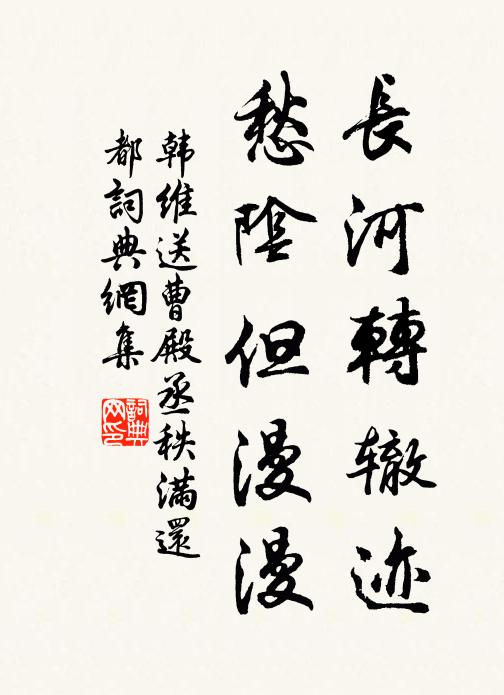 長河轉辙迹
愁陰但漫漫
韩維送曹殿丞秩滿還
都詞典網集
詞典网印